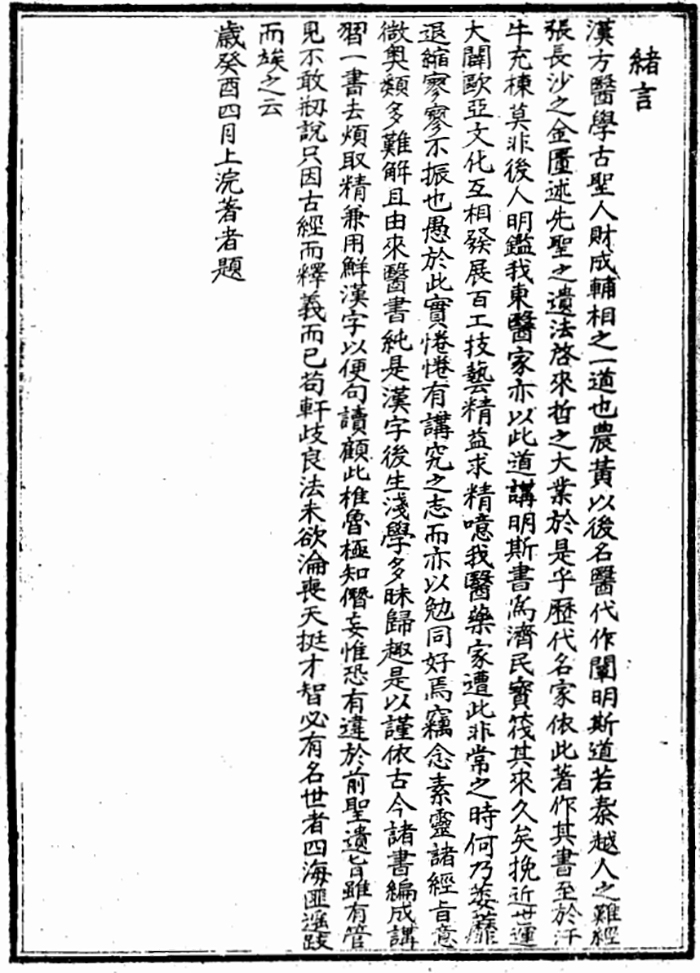 緒言
漢方醫學古聖人財成輔相之一道也農黃以後名醫代作闡明斯道若秦越人之難經
張長沙之金匱述先聖之遺法啓來哲之大業於是乎歷代名家依此著作其書至於汗
牛充棟莫非後人明鑑我東醫家亦以此道講明斯書爲濟民寶筏其來久矣挽近世運
大闢歐亞文化互相發展百工技藝精益求精噫我醫藥家遭此非常之時何乃萎靡
退縮寥寥不振也愚於此實惓惓有講究之志而亦以勉同好焉竊念素靈諸經旨意
微奧類多難解且由來醫書純是漢字後生淺學多昧歸趣是以謹依古今諸書編成講
習一書去煩取精兼用鮮漢字以便句讀顧此椎魯極知僭妄惟恐有違於前聖遺旨雖有管
見不敢刱說只因古經而釋義而已苟軒歧良法未欲淪喪天挺才智必有名世者四海匪遙跂
而竢之云
歲癸酉四月上浣著者題